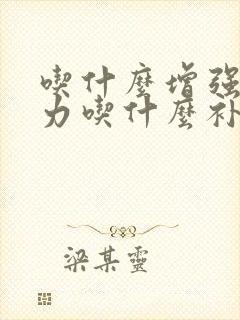 喫什麼增強
力喫什麼补
梁某靈